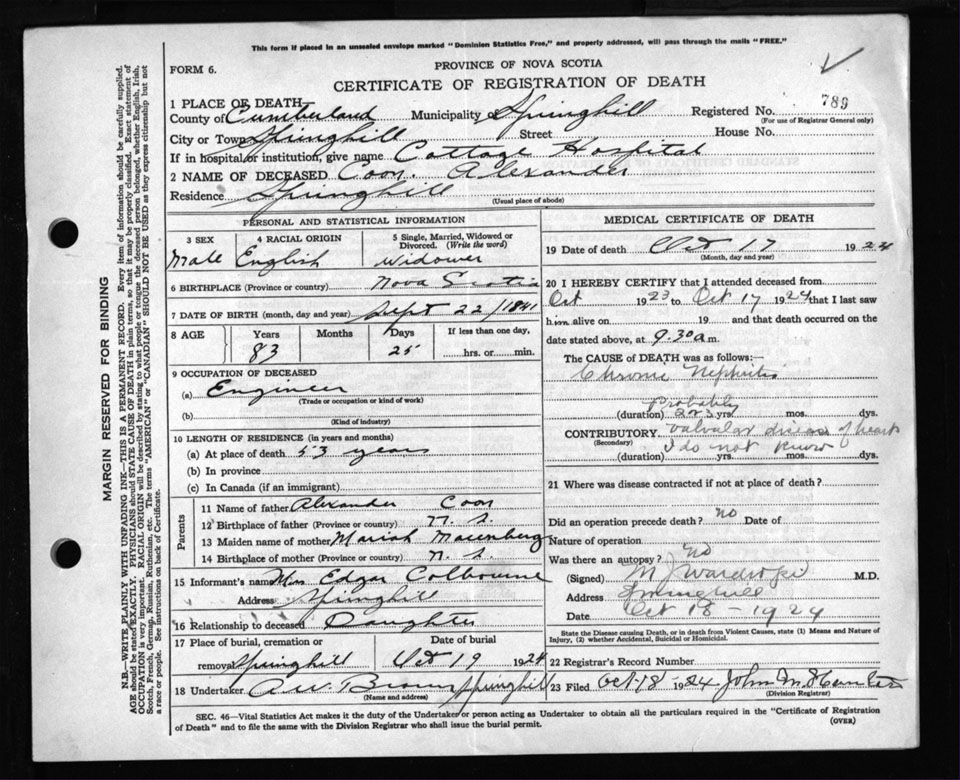 This form if placed in an unsealed envelope marked "Dominion Statistics Free," and properly addressed, will pass through the mails "FREE."
FORM 6.
PROVINCE OF NOVA SCOTIA
CERTIFICATE OF REGISTRATION OF DEATH
1 PLACE OF DEATH
County of Cumberland Municipality of Springhill Registered No. 789
(For use of Registrar General only)
City or Town Springhill Street House No.
If in hospital or institution, give name Cottage Hospital
2 NAME OF DECEASED Coon, Alexander
Residence Springhill
(Usual place of abode)
PERSONAL AND STATISTICAL INFORMATION
3 SEX Male
4 RACIAL ORIGIN English
5 Single, Married, Widowed or Divorced. (Write the word) Widower
6 BIRTHPLACE (Province or country) Nova Scotia
7 DATE OF BIRTH (month, day and year) Sept 22/1841
8 AGE Years 83 Months Days 25 If less than one day, hrs. or min.
9 OCCUPATION OF DECEASED
(a) Engineer
(Trade or occupation or kind of work)
(b)
(Kind of industry)
10 LENGTH OF RESIDENCE (in years and months)
(a) At place of death 53 years
(b) In province
(c) In Canada (if an immigrant)
Parents
11 Name of father Alexander Coon
12 Birthplace of father (Province or country) N. S.
13 Maiden name of mother Mariah
14 Birthplace of mother (Province or country) N. S.
15 Informant's name Mrs Edgar Colbourne
Address Springhill
16 Relationship to deceased Daughter
17 Place of burial, cremation or removal Springhill Date of burial Oct 19 1924
18 Undertaker A.W. Brown Springhill
(Name and address)
MEDICAL CERTIFICATE OF DEATH
19 Date of death Oct 17 1924
(Month, day and year)
20 I HEREBY CERTIFY that I attended deceased from
Oct 1923 to Oct 17 1924 that I last saw
him alive on 19 and that death occurred on the
date stated above, at 9.30 a.m.
The CAUSE OF DEATH was as follows:—
Chronic Nephritis
Probably
(duration) 2 or 3 yrs. mos. dys.
CONTRIBUTORY Valvular disease of heart
(Secondary) I do not know
(duration) yrs. mos. dys.
21 Where was disease contracted if not at place of death?
Did an operation precede death? no Date of
Nature of operation
Was there an autopsy? no
(Signed) M.D.
Address Springhill
Date Oct 18 - 1924
State the Disease causing Death, or in death from Violent Causes, state (1) Means and Nature of
Injury, (2) whether Accidental, Suicidal or Homicidal.
22 Registrar's Record Number
23 Filed Oct-18-1924 John M. Hunter
(Division Registrar)
SEC. 46—Vital Statistics Act makes it the duty of the Undertaker or person acting as Undertaker to obtain all the particulars required in the "Certificate of Registration
of Death" and to file the same with the Division Registrar who shall issue the burial permit.
(OVER)
MARGIN RESERVED FOR BINDING
N.B.—WRITE PLAINLY WITH UNFADING INK—THIS IS A PERMANENT RECORD. Every item of information should be carefully supplied.
AGE should be stated EXACTLY. PHYSICIANS should STATE CAUSE OF DEATH in plain terms, so that it may be properly classified. Exact statement of
OCCUPATION is very important. RACIAL ORIGIN will be described by stating to what people or tongue the deceased person belonged, whether English, Irish,
Scotch, French, German, Russian, Ruthenian, etc. The terms "AMERICAN" or "CANADIAN" SHOULD NOT BE USED as they express citizenship but not
a race or people. See instructions on back of Certificate.